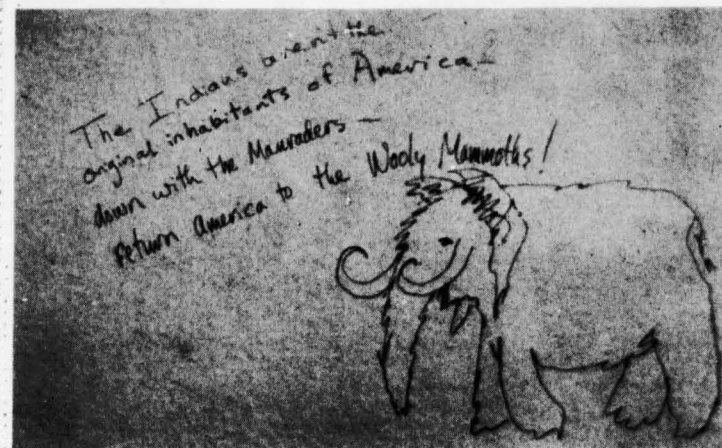 The Indians aren't the
original inhabitants of America —
down with the Mauraders —
return america to the Wooly Mammoths!